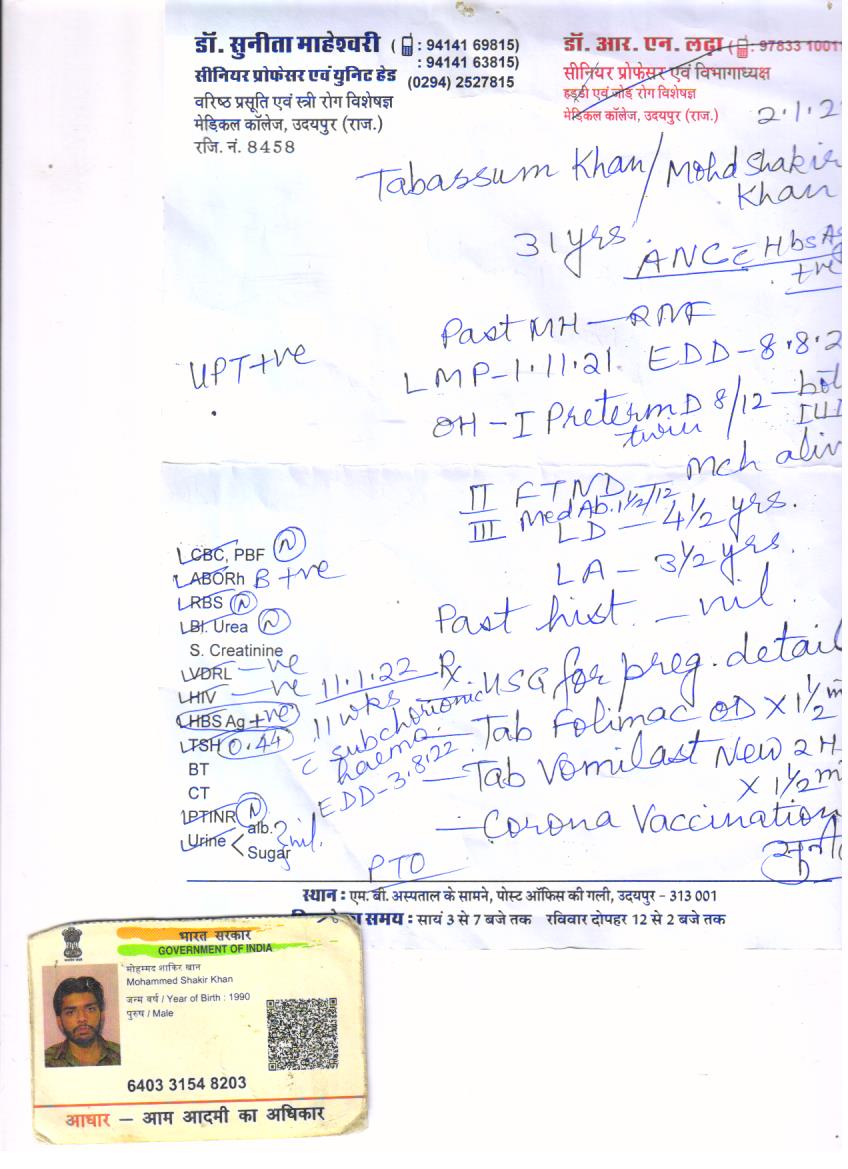 डॉ. सुनीता माहेश्वरी ( : 94141 69815)
: 94141 63815)
सीनियर प्रोफेसर एवं युनिट हेड (0294) 2527815
वरिष्ठ प्रसूति एवं स्त्री रोग विशेषज्ञ
मेडिकल कॉलेज, उदयपुर (राज.)
रजि. नं. 8458
डॉ. आर. एन. लढ़ा ( : 97833 1001
सीनियर प्रोफेसर एवं विभागाध्यक्ष
हड्डी एवं जोड़ रोग विशेषज्ञ
मेडिकल कॉलेज, उदयपुर (राज.)
2.1.2
Tabassum Khan/Mohd Shakir
Khan
31 yrs
ANC c̄ HbsAg
+ve
Past MH - RMF
UPT +ve
LMP-1.11.21 EDD-8.8.2
OH - I Preterm D 8/12 -
twin
II FTND - Mch aliv
III Med Ab. 1½/12
LD - 4½ yrs.
LA - 3½ yrs.
Past hist. - nil.
CBC, PBF N
ABORh B +ve
RBS N
Bl. Urea N
S. Creatinine
VDRL -ve
HIV -ve
HBS Ag +ve
TSH 0.44
BT
CT
PTINR N
Urine < alb. nil.
Sugar
11.1.22
11 wks
c̄ subchorionic
haema.
EDD-3.8.22
Rx
USG for preg. detail
- Tab Folimac OD X 1½ m
- Tab Vomilast New 2 H
X 1½ m
- Corona Vaccination
PTO
स्थान : एम. बी. अस्पताल के सामने, पोस्ट ऑफिस की गली, उदयपुर - 313 001
समय : सायं 3 से 7 बजे तक रविवार दोपहर 12 से 2 बजे तक
भारत सरकार
GOVERNMENT OF INDIA
मोहम्मद शाकिर खान
Mohammed Shakir Khan
जन्म वर्ष / Year of Birth : 1990
पुरुष / Male
6403 3154 8203
आधार – आम आदमी का अधिकार